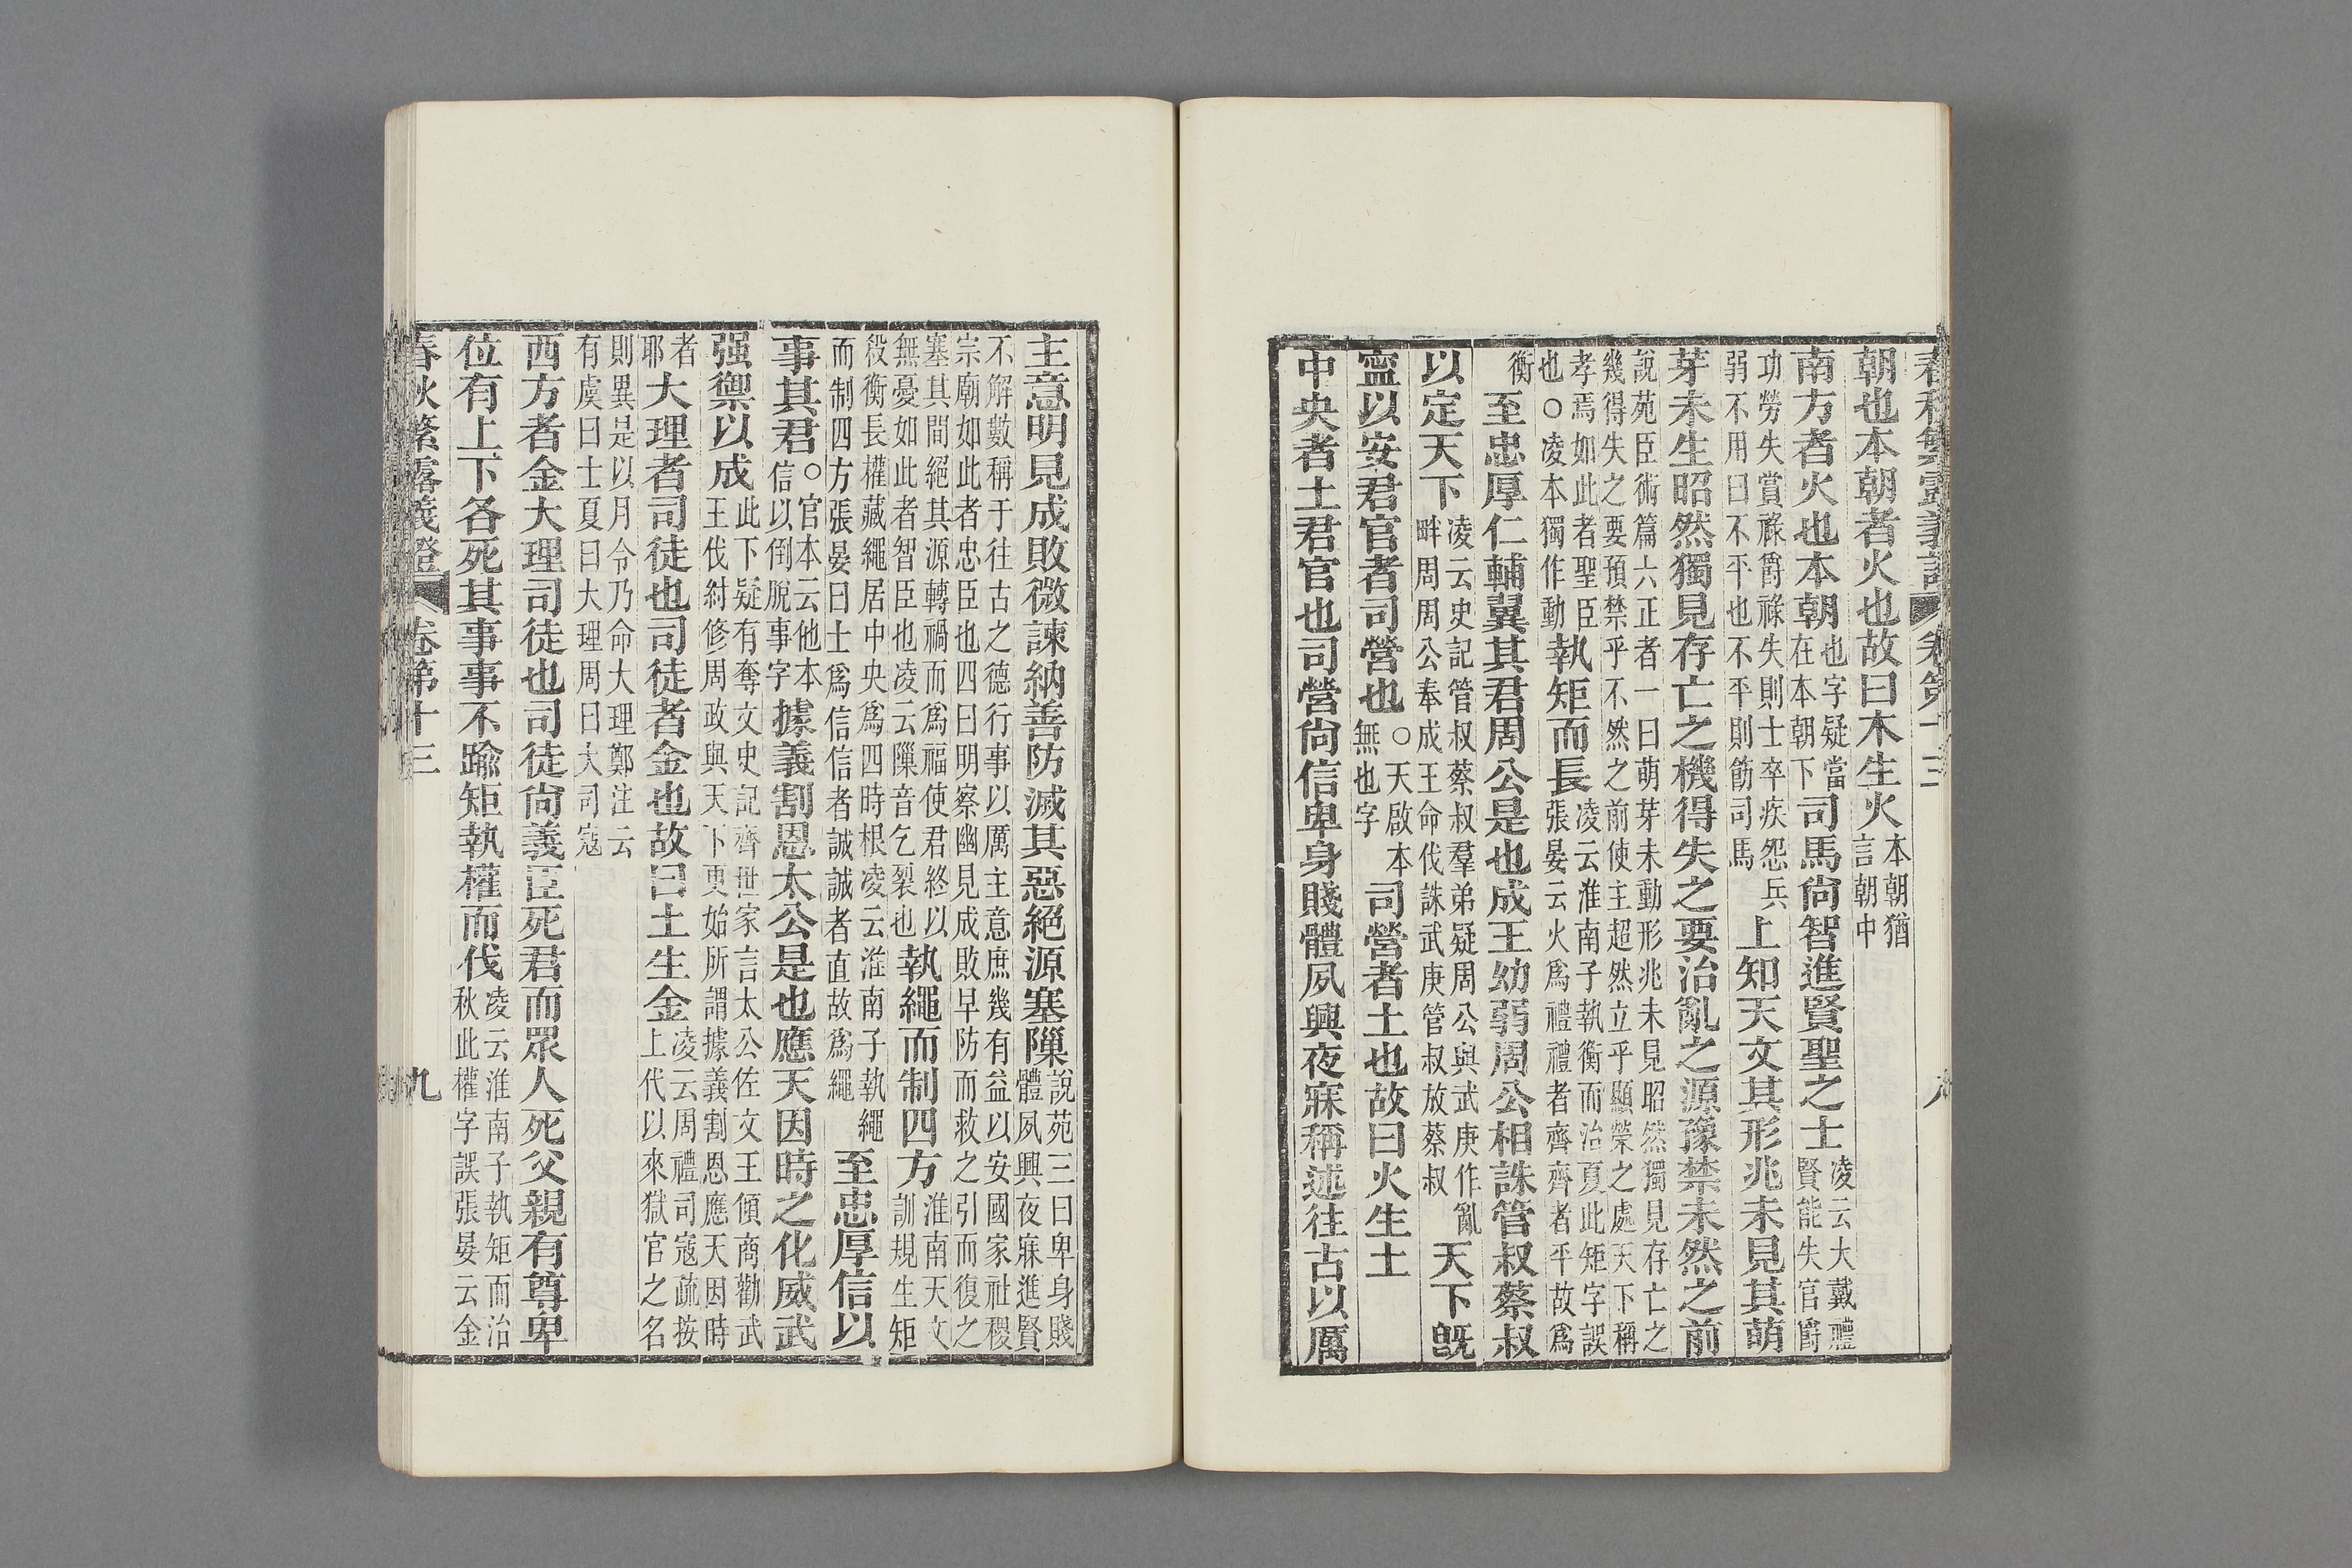 春秋繁露義證 卷第十三 八
朝也本朝者火也故曰木生火本朝猶
言朝中
南方者火也本朝也字疑當
在本朝下司馬尙智進賢聖之士凌云大戴禮
賢能失官爵
功勞失賞祿爵祿失則士卒疾怨兵
弱不用曰不平也不平則飭司馬上知天文其形兆未見其萌
芽未生昭然獨見存亡之機得失之要治亂之源豫禁未然之前
說苑臣術篇六正者一曰萌芽未動形兆未見昭然獨見存亡之
幾得失之要預禁乎不然之前使主超然立乎顯榮之處天下稱
孝焉如此者聖臣
也○凌本獨作動執矩而長凌云淮南子執衡而治夏此矩字誤
張晏云火爲禮禮者齊齊者平故爲
衡至忠厚仁輔翼其君周公是也成王幼弱周公相誅管叔蔡叔
以定天下凌云史記管叔蔡叔羣弟疑周公與武庚作亂
畔周周公奉成王命伐誅武庚管叔放蔡叔天下旣
寧以安君官者司營也○天啟本
無也字司營者土也故曰火生土
中央者土君官也司營尙信卑身賤體夙興夜寐稱述往古以厲
主意明見成敗微諫納善防滅其惡絕源塞𨻶說苑三曰卑身賤
體夙興夜寐進賢
不解數稱于往古之德行事以厲主意庶幾有益以安國家社稷
宗廟如此者忠臣也四曰明察幽見成敗早防而救之引而復之
塞其間絕其源轉禍而爲福使君終以
無憂如此者智臣也凌云𨻶音乞裂也執繩而制四方淮南天文
訓規生矩
殺衡長權藏繩居中央爲四時根凌云淮南子執繩
而制四方張晏曰土爲信信者誠誠者直故爲繩至忠厚信以
事其君○官本云他本
信以倒脫事字據義割恩太公是也應天因時之化威武
强禦以成此下疑有奪文史記齊世家言太公佐文王傾商勸武
王伐紂修周政與天下更始所謂據義割恩應天因時
者
耶大理者司徒也司徒者金也故曰土生金凌云周禮司寇疏按
上代以來獄官之名
則異是以月令乃命大理鄭注云
有虞曰士夏曰大理周曰大司寇
西方者金大理司徒也司徒尙義臣死君而眾人死父親有尊卑
位有上下各死其事事不踰矩執權而伐凌云淮南子執矩而治
秋此權字誤張晏云金
春秋繁露義證 卷第十三 九